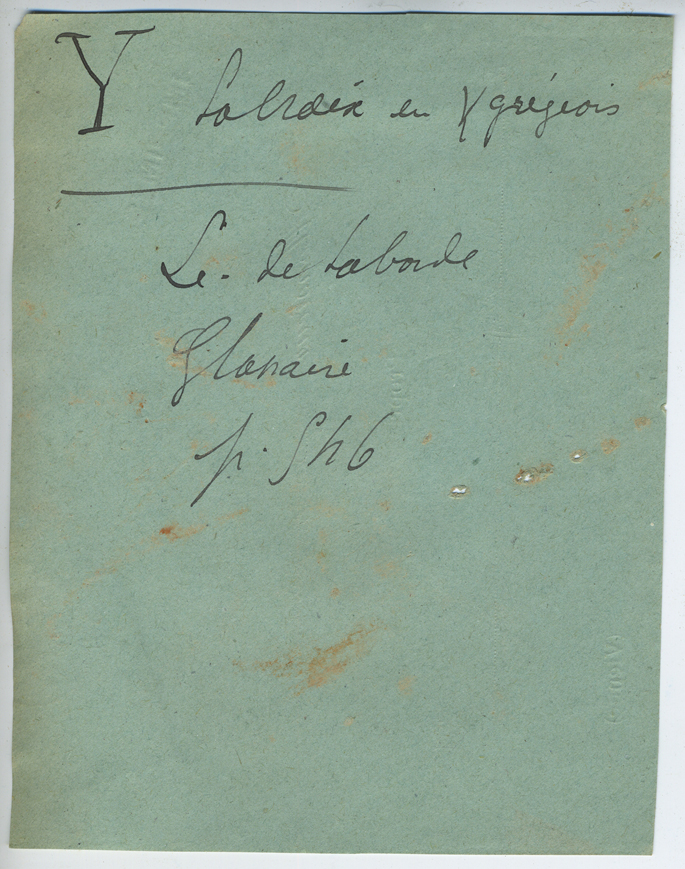 Y La Croix en Y grégeois
Le. de Laborde
Glossaire
p. 546